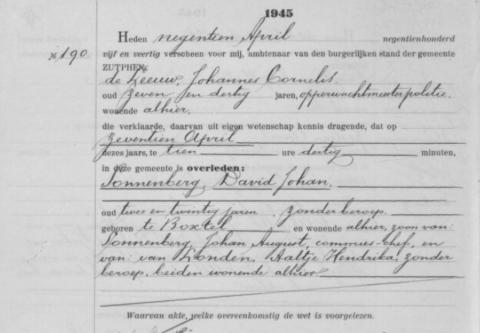 1945
Heden negentien April negentienhonderd
No 190. vijf en veertig verscheen voor mij, ambtenaar van den burgerlijken stand der gemeente
ZUTPHEN:
de Leeuw, Johannes Cornelis
oud zeven en dertig jaren, opperwachtmeester politie,
wonende alhier,
die verklaarde, daarvan uit eigen wetenschap kennis dragende, dat op
zeventien April
dezes jaars, te tien ure dertig minuten,
in deze gemeente is overleden:
Sonnenberg, David Johan,
oud twee en twintig jaren, zonder beroep,
geboren te Boxtel en wonende alhier, zoon van:
Sonnenberg, Johan August, commies-chef, en
van: van Londen, Aaltje Hendrika, zonder
beroep, beiden wonende alhier
Waarvan akte, welke overeenkomstig de wet is voorgelezen.